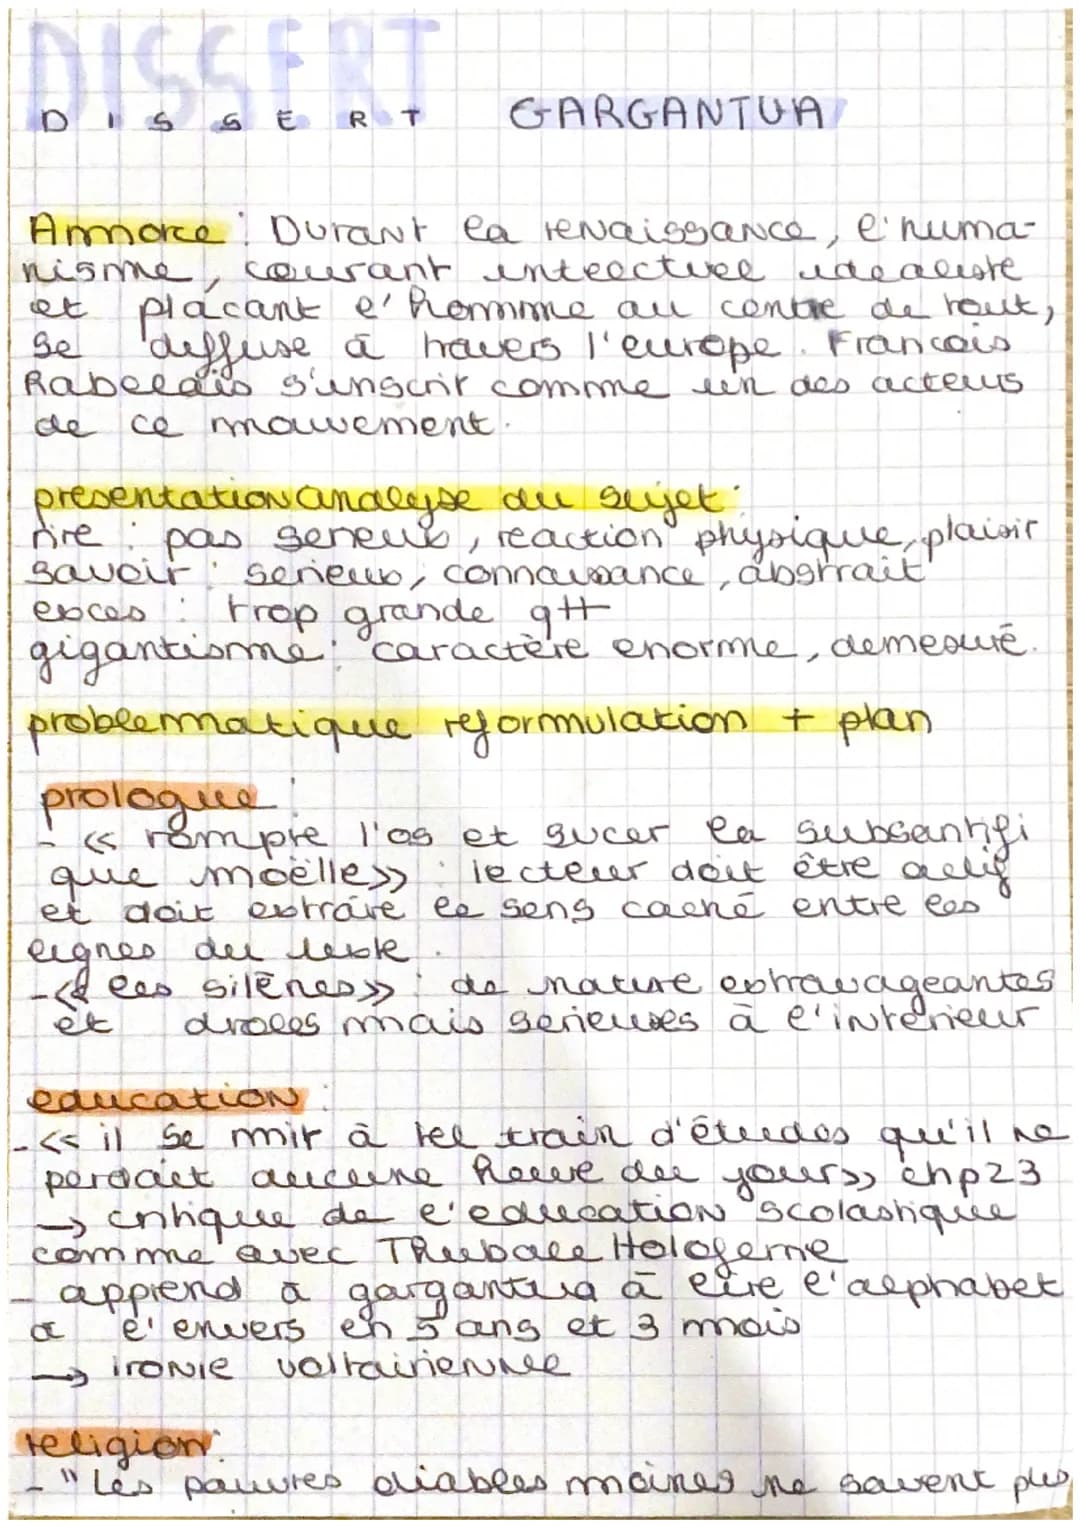 DISSERT
DISSERT GARGANTUA
Ammorce : Durant la renaissance, l'huma-
nisme, courant intelectuel idealiste
et plaçant l'homme au centre de tout,
se diffuse à travers l'europe. Francois
Rabelais s'inscrit comme un des acteurs
de ce mouvement.
presentation analyse du sujet :
rire : pas serieux, reaction physique, plaisir
savoir : serieux, connaissance, abstrait
exces : trop grande qtt
gigantisme : caractère enorme, demesuré.
problemmatique reformulation + plan
prologue :
- << rompre l'os et sucer la subsantifi
que moëlle>> : lecteur doit être actif
et doit extraire le sens caché entre les
lignes du texte.
-<< les silènes>> : de nature extravageantes
et droles mais serieuses à l'interieur
education :
-<< il se mit à tel train d'études qu'il ne
perdait aucune heure du jour>> chp23
→ critique de l'education scolastique
comme avec Thubale Holoferne
- apprend à gargantua à lire l'alphabet
a l'envers en 5 ans et 3 mois
→ ironie voltairienne
religion :
- "Les pauvres diables moines ne savent plus